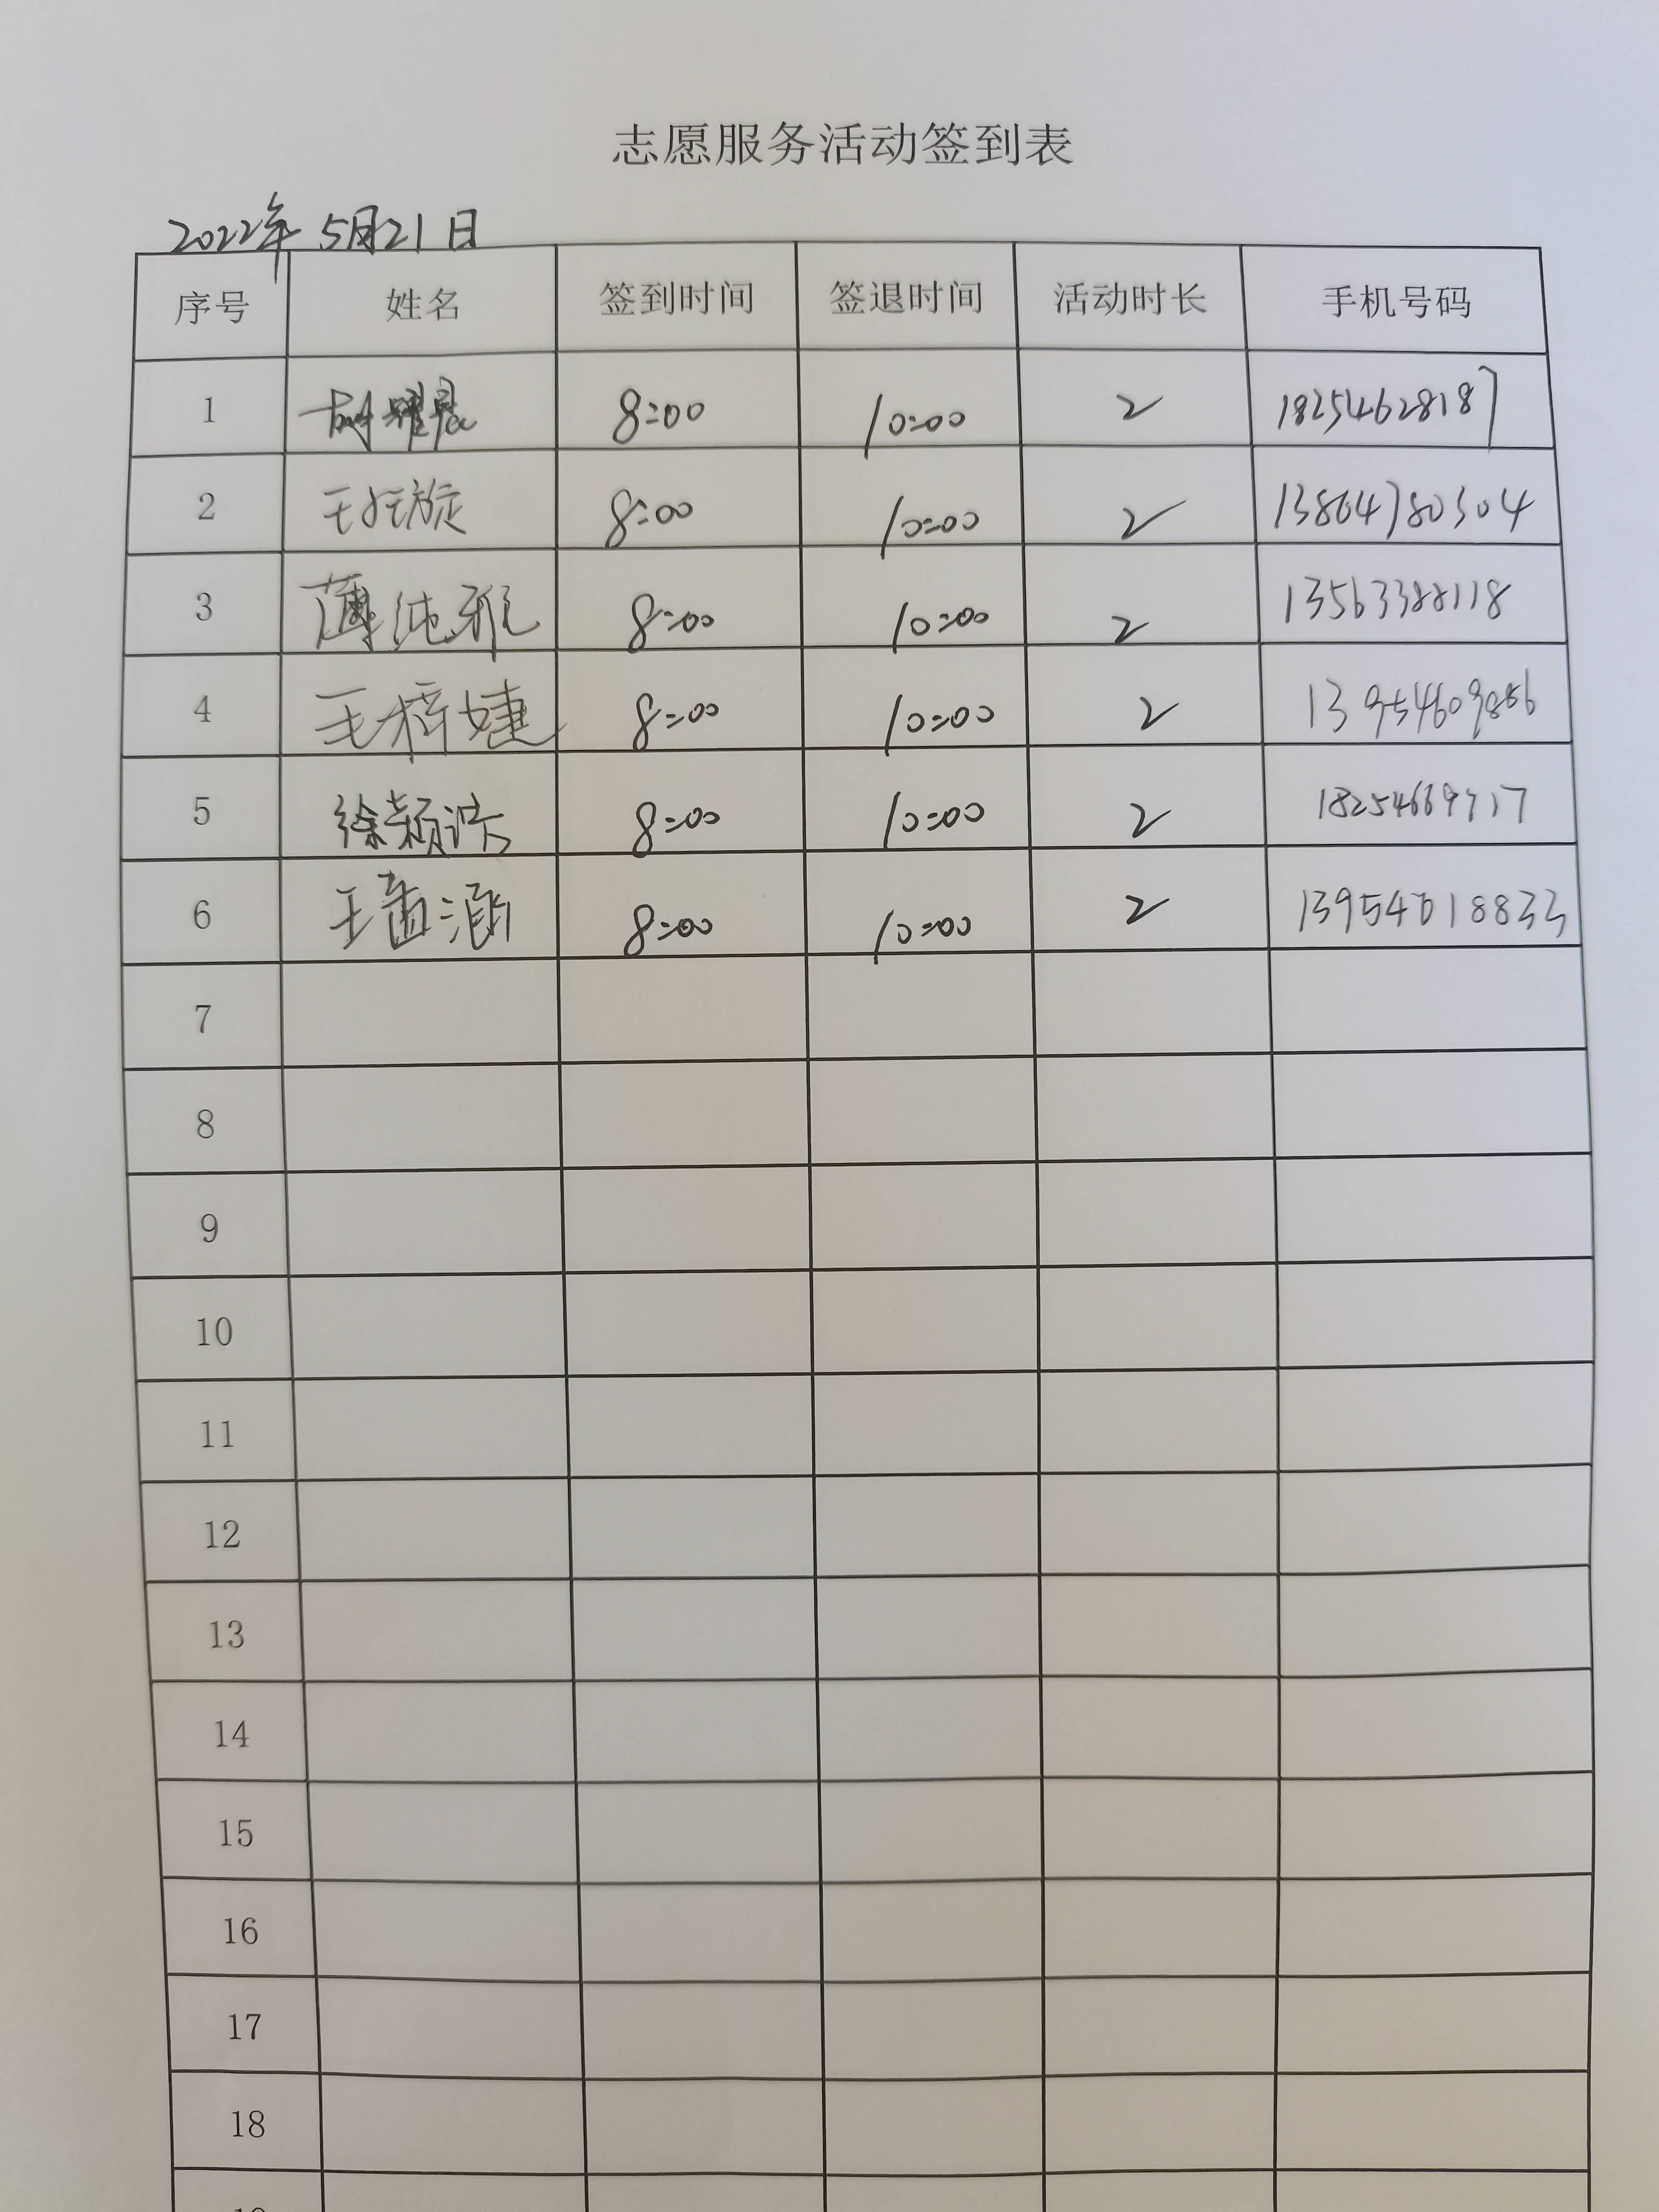 志愿服务活动签到表
2022年 5月21日
序号 姓名 签到时间 签退时间 活动时长 手机号码
1 胡耀晨 8:00 10:00 2 18254628187
2 王钰旋 8:00 10:00 2 13864780304
3 薄纯雅 8:00 10:00 2 13563388118
4 王梓婕 8:00 10:00 2 13954609886
5 徐颖浩 8:00 10:00 2 18254669717
6 王菡涵 8:00 10:00 2 13954618833
7
8
9
10
11
12
13
14
15
16
17
18